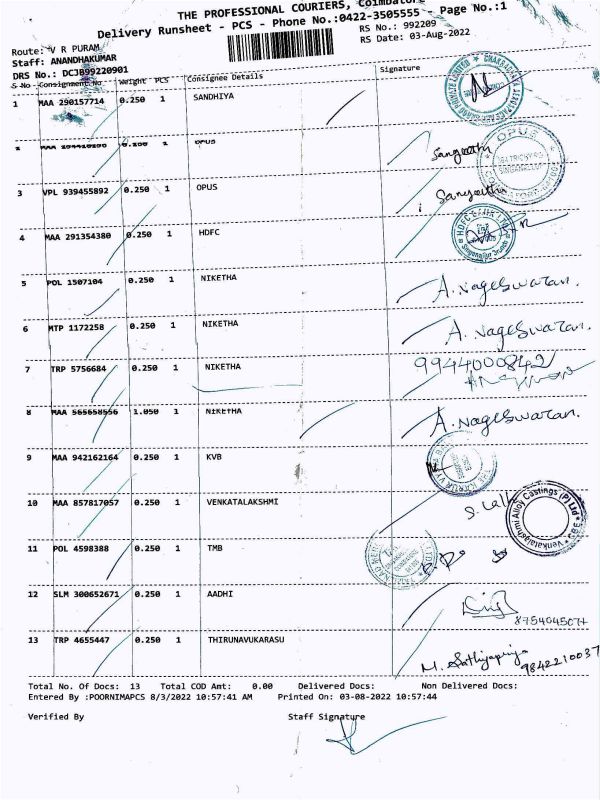 THE PROFESSIONAL COURIERS, Coimbatore
Delivery Runsheet - PCS - Phone No.:0422-3505555 - Page No.:1
Route: V R PURAM
RS No.: 992209
Staff: ANANDHAKUMAR
RS Date: 03-Aug-2022
DRS No.: DCJB99220901
S No Consignment No. Weight PCS Consignee Details Signature
1 MAA 290157714 0.250 1 SANDHIYA
1 OPUS Sangeetha
OPUS
3 VPL 939455892 0.250 1 OPUS Sangeetha
4 MAA 291354380 0.250 1 HDFC
5 POL 1507104 0.250 1 NIKETHA A. Nageswaran.
6 MTP 1172258 0.250 1 NIKETHA A. Nageswaran.
7 TRP 5756684 0.250 1 NIKETHA 9944000842
8 MAA 565658556 1.050 1 NIKETHA A. Nageswaran.
9 MAA 942162164 0.250 1 KVB
10 MAA 857817057 0.250 1 VENKATALAKSHMI
Venkatalakshmi Alloy Castings (P) Ltd
11 POL 4598388 0.250 1 TMB
12 SLM 300652671 0.250 1 AADHI
13 TRP 4655447 0.250 1 THIRUNAVUKARASU M. Sathiyapriya 9842210037
Total No. Of Docs: 13 Total COD Amt: 0.00 Delivered Docs: Non Delivered Docs:
Entered By :POORNIMAPCS 8/3/2022 10:57:41 AM Printed On: 03-08-2022 10:57:44
Verified By Staff Signature